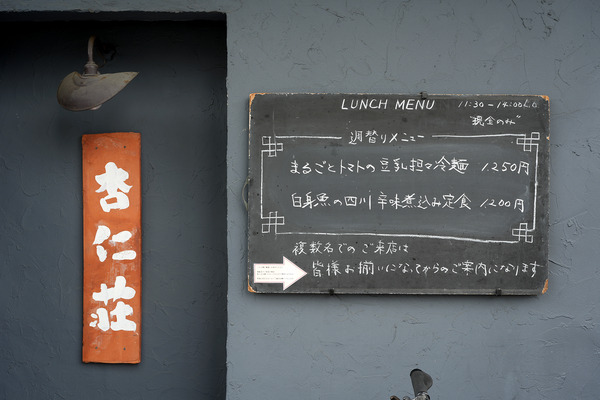 杏仁荘
LUNCH MENU
11:30-14:00L.O
"現金のみ"
週替りメニュー
まるごとトマトの豆乳担々冷麺 1,250円
白身魚の四川辛味煮込み定食 1,200円
複数名でのご来店は
皆様お揃いになってからのご案内になります